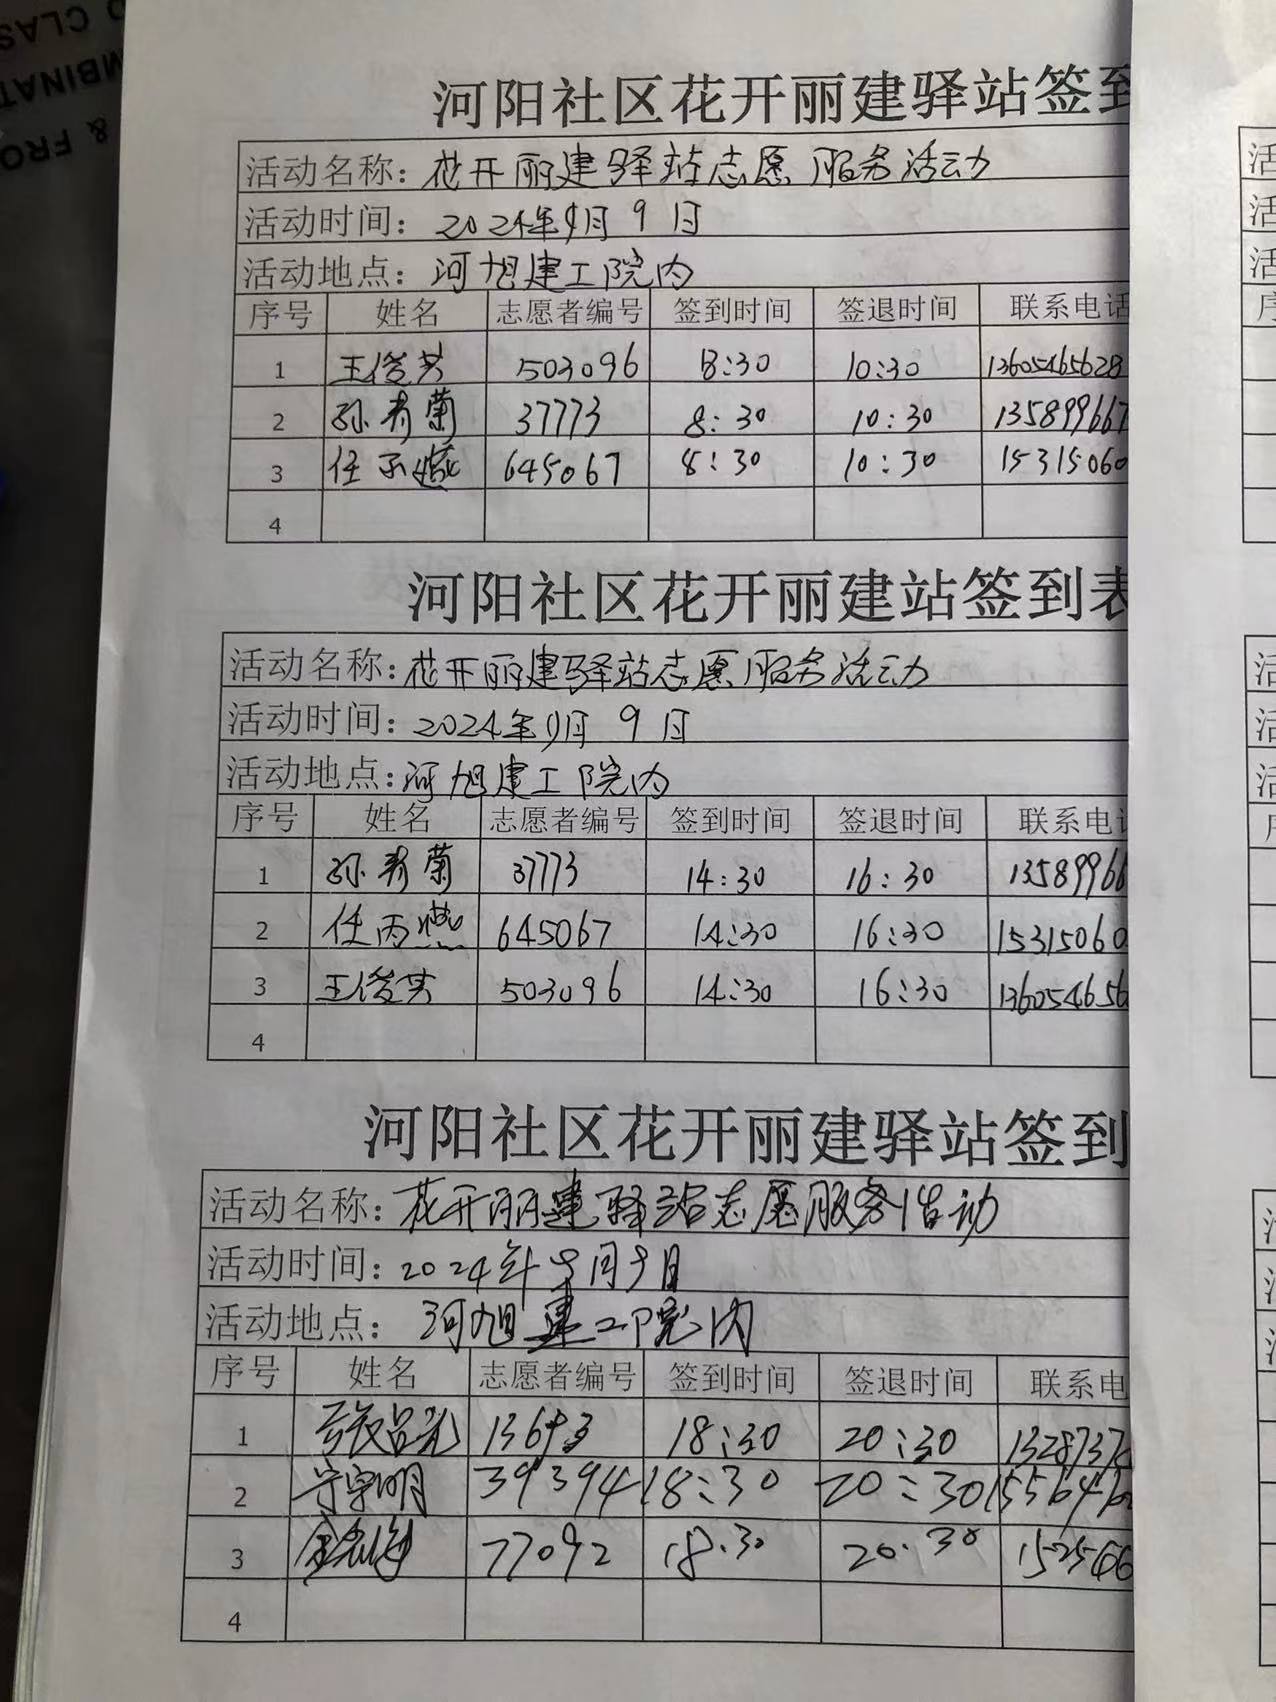 O CLAS
MBINAT
& FRO
河阳社区花开丽建驿站签到
活动名称：花开丽建驿站志愿服务活动
活动时间：2024年9月9日
活动地点：河旭建工院内
序号 姓名 志愿者编号 签到时间 签退时间 联系电话
1 王俊芳 503096 8:30 10:30 13605465628
2 孙秀菊 37773 8:30 10:30 135899667
3 任 645067 8:30 10:30 15315060
4
河阳社区花开丽建站签到表
活动名称：花开丽建驿站志愿服务活动
活动时间：2024年9月9日
活动地点：河旭建工院内
序号 姓名 志愿者编号 签到时间 签退时间 联系电
1 孙秀菊 37773 14:30 16:30 13589966
2 任丙燕 645067 14:30 16:30 15315060
3 王俊芳 503096 14:30 16:30 136054656
4
河阳社区花开丽建驿站签到
活动名称：花开丽建驿站志愿服务活动
活动时间：2024年9月9日
活动地点：河旭建工院内
序号 姓名 志愿者编号 签到时间 签退时间 联系电
1 18:30 20:30 1328737
2 39394 18:30 20:30
3 77092 18:30 20:30
4
活
活
活
序
活
活
活
活
活